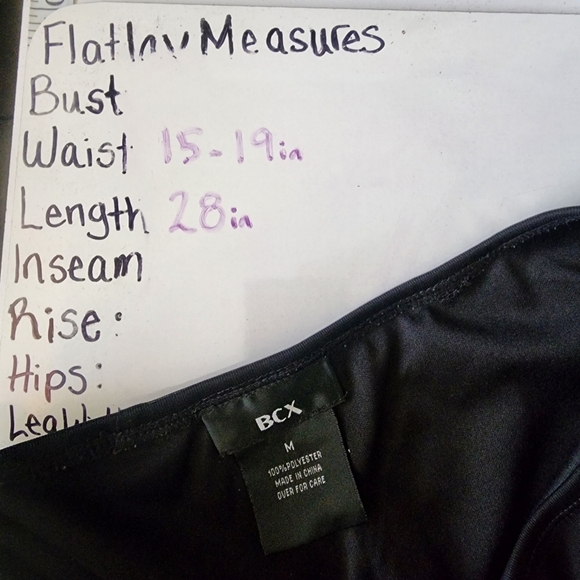 Flatlay Measures
Bust
Waist 15-19in
Length 28in
Inseam
Rise:
Hips:
BCX
M
100%POLYESTER
MADE IN CHINA
OVER FOR CARE